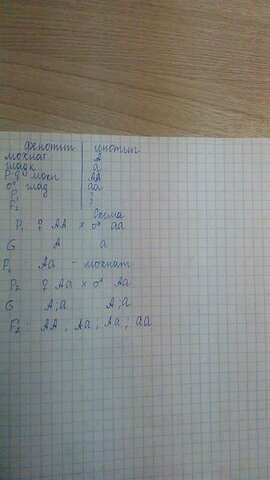 Фенотип | генотип
мохнат А
гладк а
P ♀ мохн АА
♂ глад аа
F1 ?
F2 ?
Схема
P1 ♀ АА × ♂ аа
G А а
F1 Аа - мохнат
P2 ♀ Аа × ♂ Аа
G А;а А;а
F2 АА, Аа, Аа, аа